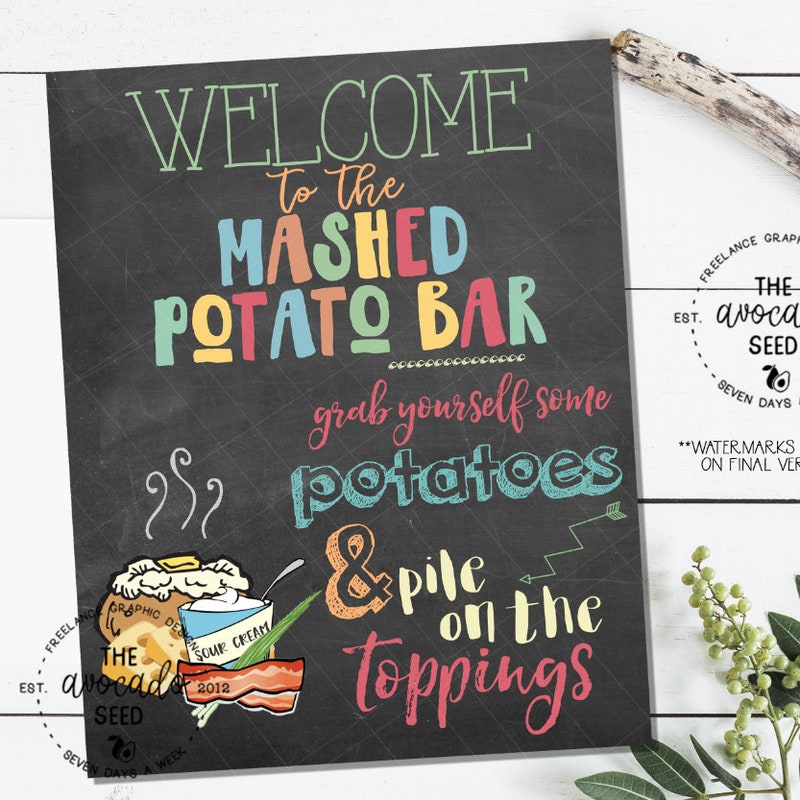 WELCOME
to the
MASHED
POTATO BAR
grab yourself some
potatoes
& pile
on the
toppings
SOUR CREAM
FREELANCE GRAPHIC DESIGN
EST. 2012
THE
avocado
SEED
SEVEN DAYS A WEEK
FREELANCE GRAPHIC
EST.
THE
avocado
SEED
SEVEN DAYS
**WATERMARKS
ON FINAL